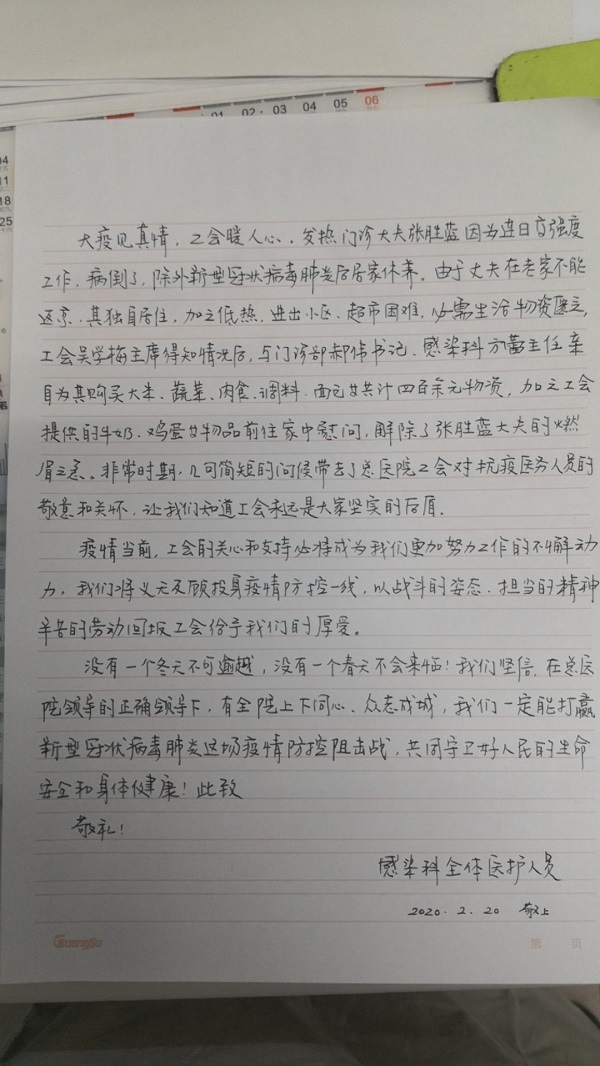 01 02 03 04 05 06
04
11
18
25
大疫见真情，工会暖人心。发热门诊大夫张胜蓝因为连日高强度
工作，病倒了，除外新型冠状病毒肺炎后居家休养。由于丈夫在老家不能
返京，其独自居住，加之低热，进出小区、超市困难，必需生活物资匮乏，
工会吴学梅主席得知情况后，与门诊部郝伟书记、感染科方蕾主任亲
自为其购买大米、蔬菜、肉食、调料、面包等共计四百余元物资，加之工会
提供的牛奶、鸡蛋等物品前往家中慰问，解除了张胜蓝大夫的燃
眉之急。非常时期，几句简短的问候带去了总医院工会对抗疫医务人员的
敬意和关怀，让我们知道工会永远是大家坚实的后盾。
疫情当前，工会的关心和支持必将成为我们更加努力工作的不懈动
力，我们将义无反顾投身疫情防控一线，以战斗的姿态、担当的精神
辛苦的劳动回报工会给予我们的厚爱。
没有一个冬天不可逾越，没有一个春天不会来临！我们坚信，在总医
院领导的正确领导下，有全院上下同心、众志成城，我们一定能打赢
新型冠状病毒肺炎这场疫情防控阻击战，共同守卫好人民的生命
安全和身体健康！此致
敬礼！
感染科全体医护人员
2020.2.20 敬上
GuangBo 第 页